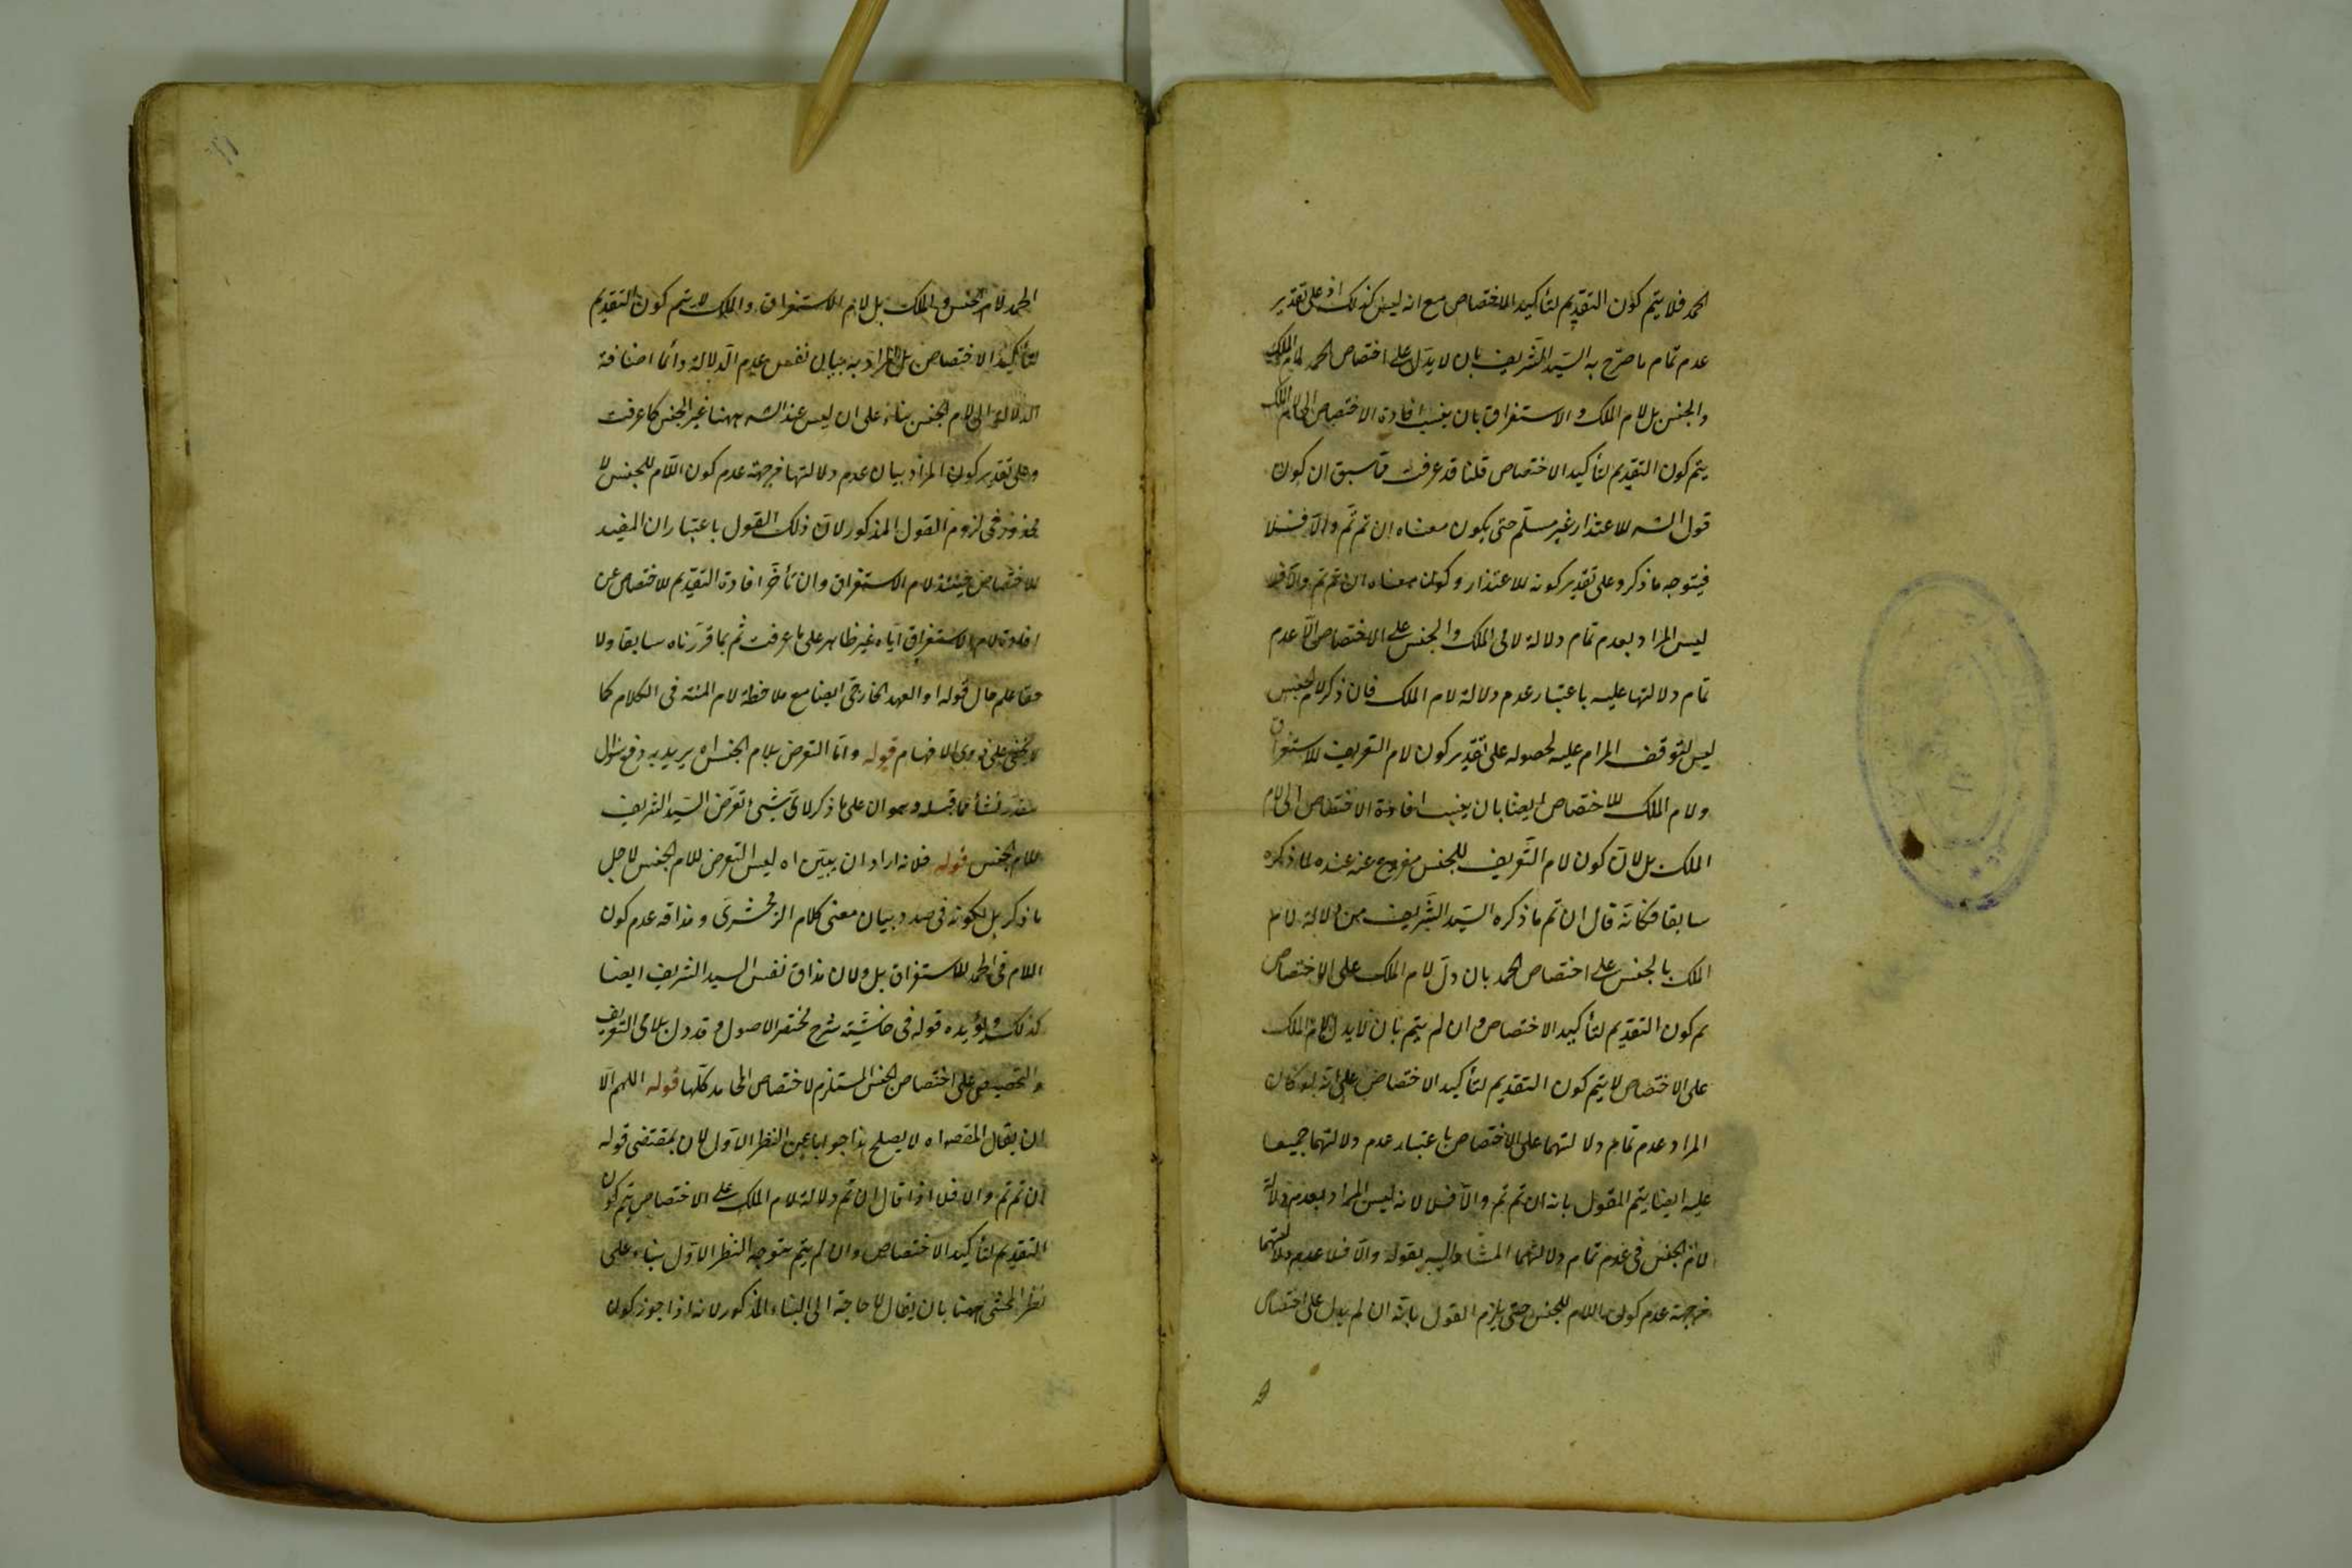 الحمد فلا يتم كون التقديم لتأكيد الاختصاص مع انه ليس كذلك اذ على تقدير
عدم تمام ما صرّح به السيّد الشّريف بان لا يدلّ على اختصاص الحمد لام الملك
والجنس بل لام الملك والاستغراق بان ينسب افادة الاختصاص الى لام الملك
يتم كون التقديم لتأكيد الاختصاص قلنا قد عرفت مما سبق ان كون
قول الشه للاعتذار غير مسلّم حتى يكون معناه ان تم تمّ والّا فلا
فيتوجه ما ذكر وعلى تقدير كونه للاعتذار وكون معناه ان تم تم والّا فلا
ليس المراد بعدم تمام دلالة لامى الملك والجنس على الاختصاص الّا عدم
تمام دلالتها عليه باعتبار عدم دلالة لام الملك فان ذكر لام الجنس
ليس لتوقف المرام عليه لحصوله على تقدير كون لام التعريف للاستغراق
ولام الملك للاختصاص ايضا بان ينسب افادة الاختصاص الى لام
الملك بل لانّ كون لام التّعريف للجنس مفروغ عنه عنده لما ذكره
سابقا فكانّه قال ان تم ما ذكره السيّد الشّريف من دلالة لام
الملك بالجنس على اختصاص الحمد بان دلّ لام الملك على الاختصاص
تم كون التقديم لتأكيد الاختصاص وان لم يتم بان لا يدل لام الملك
على الاختصاص لا يتم كون التقديم لتأكيد الاختصاص على انّه لو كان
المراد عدم تمام دلالتهما على الاختصاص باعتبار عدم دلالتهما جميعا
عليه ايضا يتم القول بانه ان تم تم والّا فلا لانه ليس المراد بعدم دلالة
لام الجنس فى عدم تمام دلالتهما المشار اليه بقوله والّا فلا عدم دلالتهما
من جهة عدم كون اللام للجنس حتى يلزم القول بانّه ان لم يدل على اختصاص
الحمد لام الجنس والملك بل لام الاستغراق والملك لا يتم كون التقديم
لتأكيد الاختصاص بل المراد به بيان نفس عدم الدلالة وأما اضافة
الدلالة الى لام الجنس بناء على ان ليس عند الشه ههنا غير الجنس كما عرفت
وعلى تقدير كون المراد بيان عدم دلالتها من جهة عدم كون اللّام للجنس لا
محذور فى لزوم القول المذكور لانّ ذلك القول باعتبار ان المفيد
للاختصاص حينئذ لام الاستغراق وان تأخّر افادة التقديم للاختصاص عن
افادة لام الاستغراق ايّاه غير ظاهر على ما عرفت ثم بما قرّرناه سابقا ولا
حقا علم حال قوله او العهد الخارجى ايضا مع ملاحظة لام المنه فى الكلام كما
لا يخفى على ذوى الافهام قوله وامّا التعرض بلام الجنس اه يريد به دفع سؤال
مقدّر نشأ مما قبله وهو ان على ما ذكر لاىّ شىء تعرّض السيّد الشريف
للام الجنس قوله فلانه اراد ان يبيّن اه ليس التعرض للام الجنس لاجل
ما ذكر بل لكونه فى صدد بيان معنى كلام الزمخشرى ومذاقه عدم كون
اللام فى الحمد للاستغراق بل ولان مذاق نفس السيد الشريف ايضا
كذلك ويؤيده قوله فى حاشيّته شرح مختصر الاصول وقد دل بلامى التعريف
والتخصيص على اختصاص الجنس المستلزم لاختصاص المحامد كلّها قوله اللهم الّا
ان يقال المقصه اه لا يصلح هذا جوابا عن النظر الاوّل لان بمقتضى قوله
ان تم تم والا فلا اذا قال ان تم دلالة لام الملك على الاختصاص يتم كون
التقديم لتأكيد الاختصاص وان لم يتم يتوجه النظر الاوّل بناء على
نظر المحشى ههنا بان يقال لا حاجة الى البناء المذكور لانه اذا جوز كون